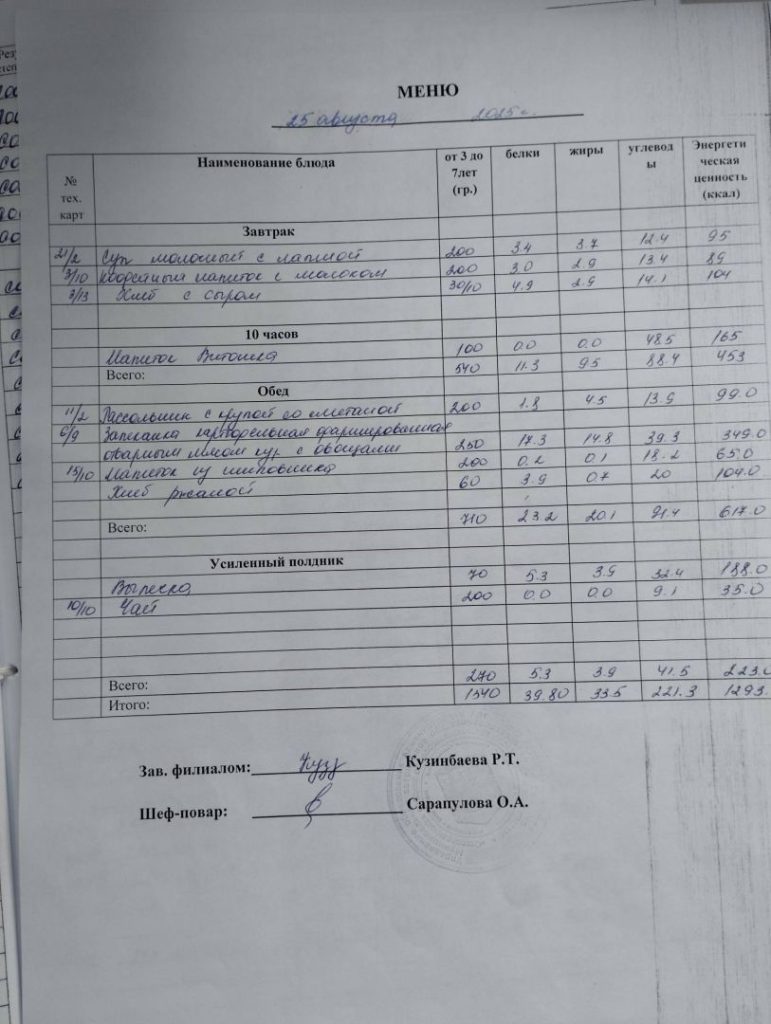 МЕНЮ
25 августа 2025 г.
№ тех. карт Наименование блюда от 3 до 7лет (гр.) белки жиры углеводы Энергетическая ценность (ккал)
Завтрак
21/2 Суп молочный с лапшой 200 3.4 3.7 12.4 95
3/10 Кофейный напиток с молоком 200 3.0 2.9 13.4 89
3/13 Хлеб с сыром 30/10 4.9 2.9 14.1 104
10 часов
Напиток Витошка 100 0.0 0.0 48.5 165
Всего: 540 11.3 9.5 88.4 453
Обед
11/2 Рассольник с крупой со сметаной 200 1.8 4.5 13.9 99.0
6/9 Запеканка картофельная фаршированная
отварным мясом кур с овощами 250 17.3 14.8 39.3 349.0
15/10 Напиток из шиповника 200 0.2 0.1 18.2 65.0
Хлеб ржаной 60 3.9 0.7 20 104.0
Всего: 710 23.2 20.1 91.4 617.0
Усиленный полдник
Выпечка 70 5.3 3.9 32.4 188.0
10/10 Чай 200 0.0 0.0 9.1 35.0
Всего: 270 5.3 3.9 41.5 223.0
Итого: 1540 39.80 33.5 221.3 1293.
Зав. филиалом: Кузинбаева Р.Т.
Шеф-повар: Сарапулова О.А.